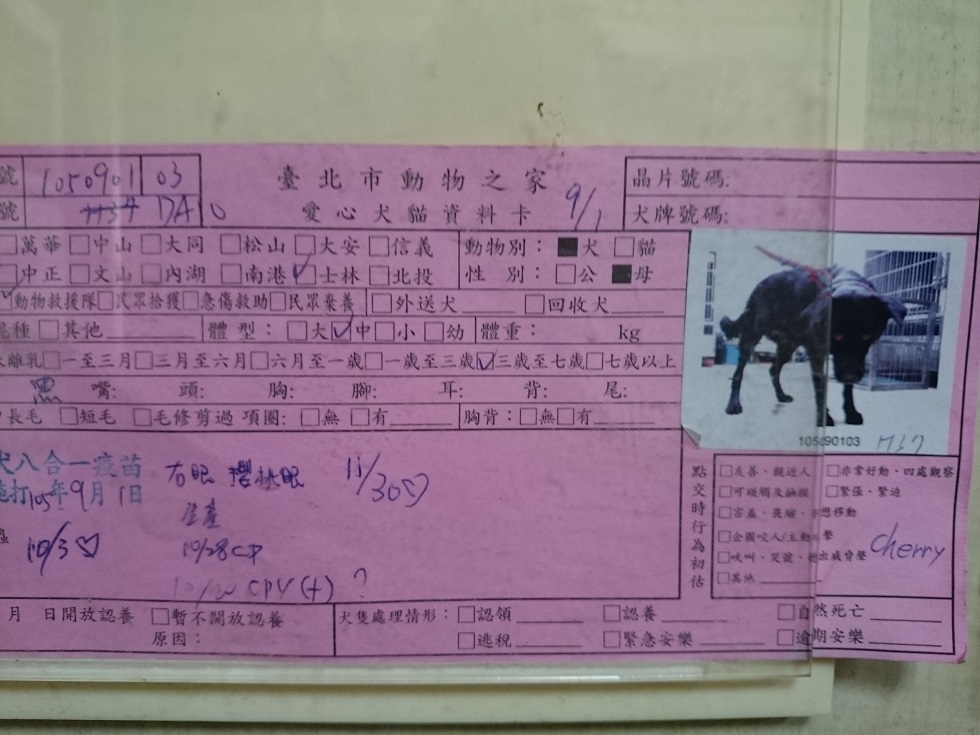 號 1050901 03
臺北市動物之家
9/1
晶片號碼:
號 DA
愛心犬貓資料卡
犬牌號碼:
□萬華 □中山 □大同 □松山 □大安 □信義
動物別: ■犬 □貓
□中正 □文山 □內湖 □南港 ☑士林 □北投
性別: □公 ■母
☑動物救援隊 □民眾拾獲 □急傷救助 □民眾棄養 □外送犬 □回收犬
混種 □其他 體型: □大 ☑中 □小 □幼 體重: kg
離乳 □一至三月 □三月至六月 □六月至一歲 □一歲至三歲 ☑三歲至七歲 □七歲以上
黑 嘴: 頭: 胸: 腳: 耳: 背: 尾:
長毛 □短毛 □毛修剪過 項圈: □無 □有 胸背: □無 □有
105090103
犬八合一疫苗
施打105年9月1日
10/3♡
右眼 櫻桃眼
生產
10/28 CP
CPV(+) ?
11/30♡
點交時行為初估
□友善、親近人 □非常好動、四處觀察
□可碰觸及論撫 □緊張、緊迫
□害羞、畏縮、不想移動
□企圖咬人/主動攻擊
□吠叫、哭號、發出威脅聲
□其他
cherry
月 日開放認養 □暫不開放認養
原因:
犬隻處理情形: □認領 □認養 □自然死亡
□逃稅 □緊急安樂 □逾期安樂